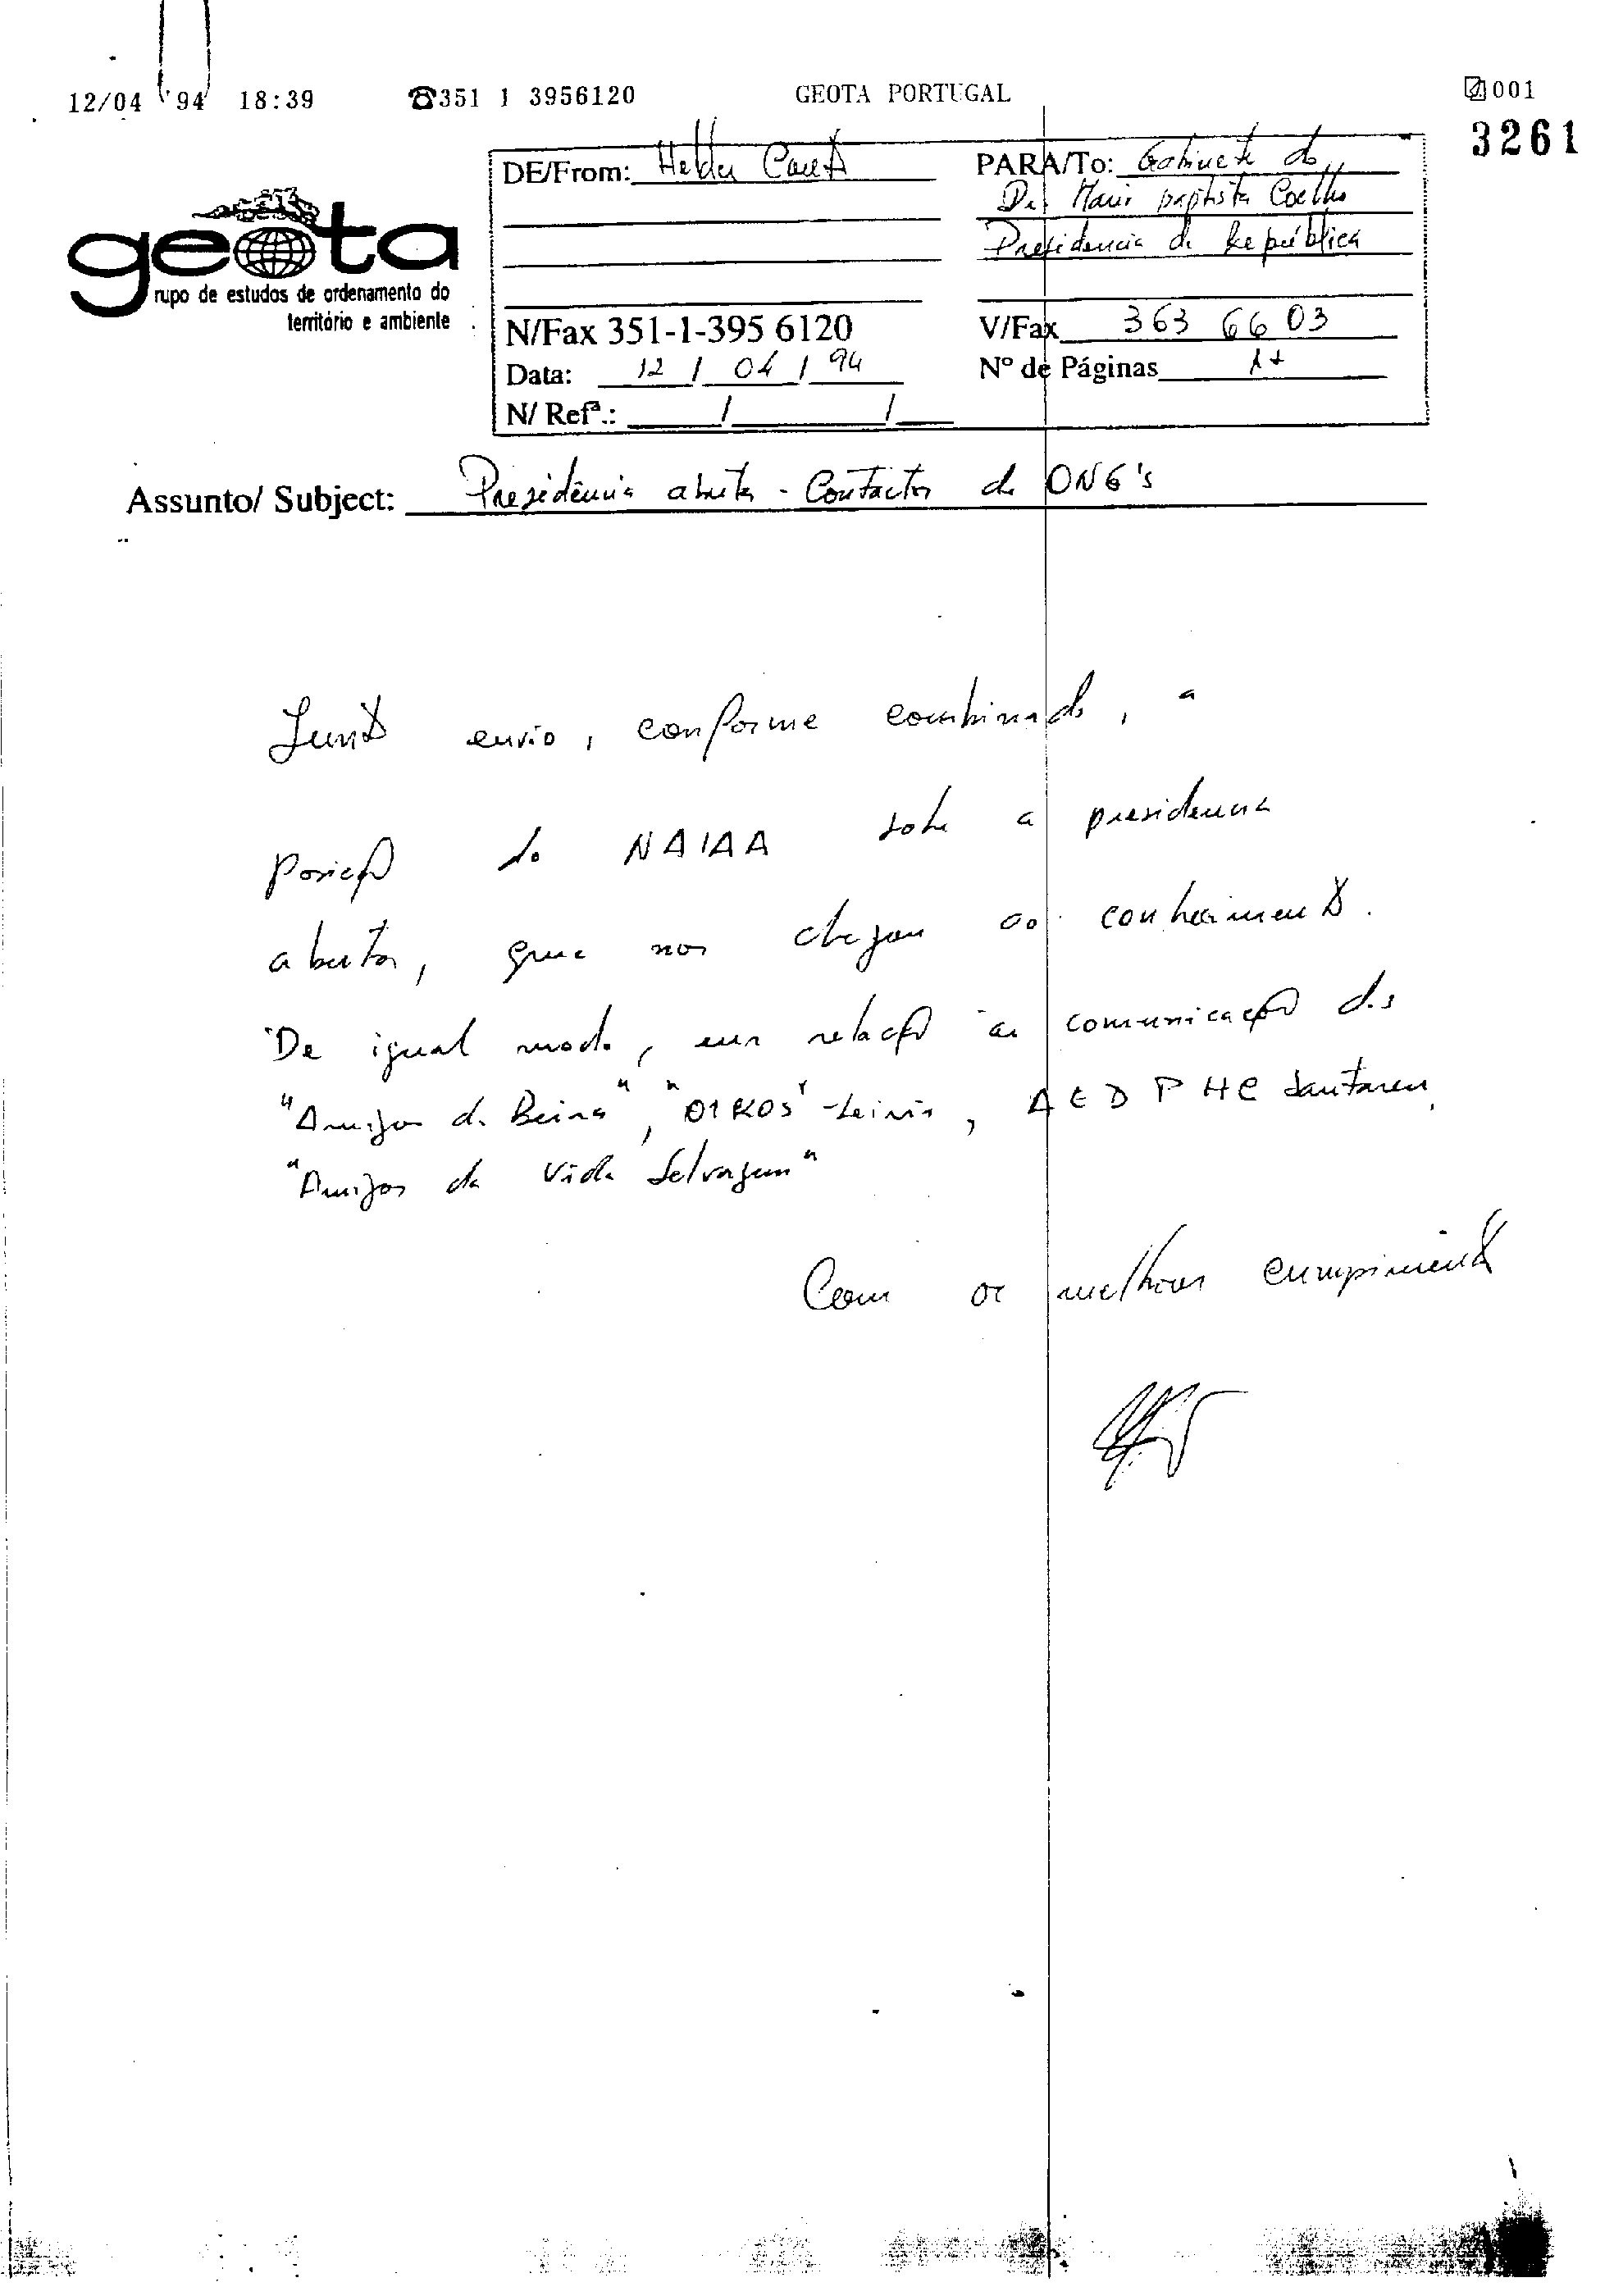 12/04 '94 18:39 ☎351 1 3956120 GEOTA PORTUGAL 001
3261
geota
grupo de estudos de ordenamento do
território e ambiente
DE/From: Helder Careto
PARA/To: Gabinete do
Dr. Mario Baptista Coelho
Presidencia da República
N/Fax 351-1-395 6120
V/Fax 363 66 03
Data: 12 / 04 / 94
Nº de Páginas 1+
N/ Refª.: / /
Assunto/ Subject: Presidência aberta - Contactos de ONG's
Junto envio, conforme combinado, a
posição do NAIAA sobre a presidencia
aberta, que nos chegou ao conhecimento.
De igual modo, em relação à comunicação dos
"Amigos da Beira", "OIKOS" - Leiria, AEDPHC Santarem,
"Amigos da Vida Selvagem"
Com os melhores cumprimentos